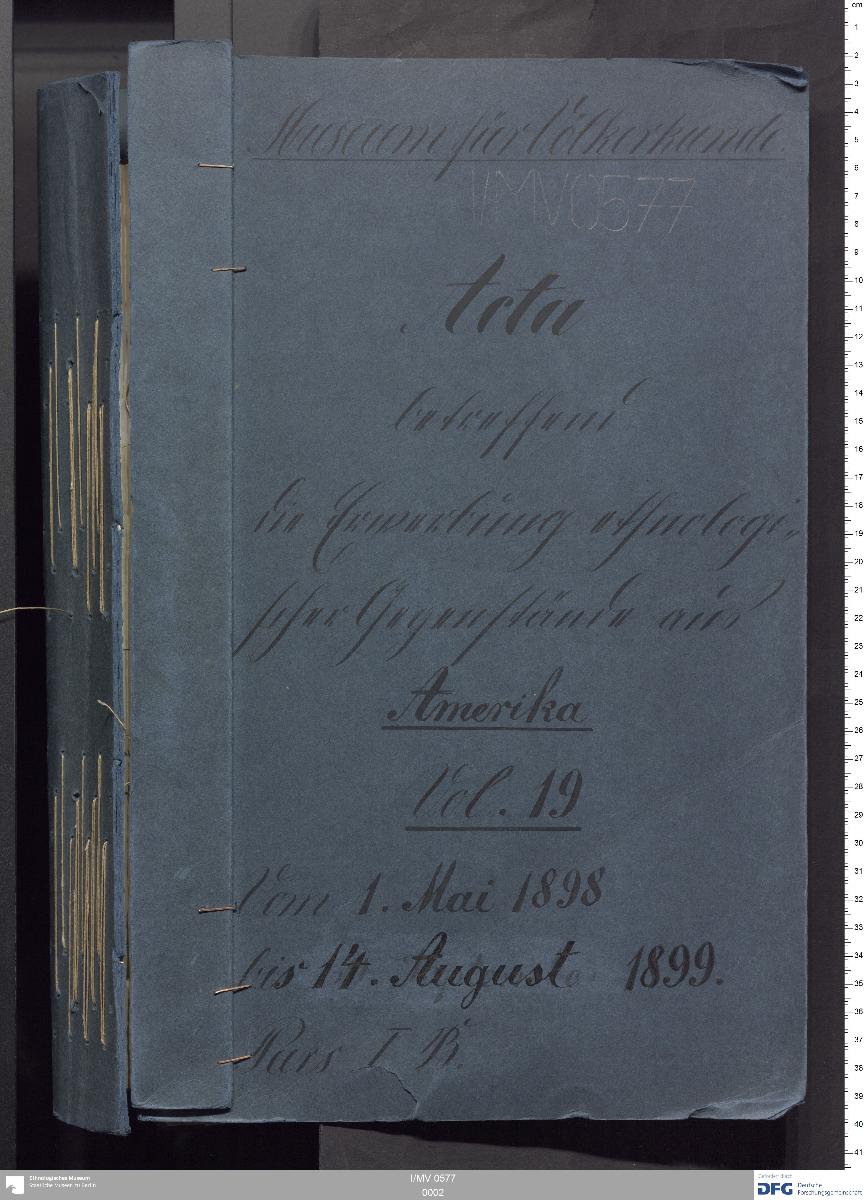 Museum für Völkerkunde
I/MV 0577
Acta
betreffend
die Erwerbung ethnologi-
scher Gegenstände aus
Amerika
Vol. 19
Vom 1. Mai 1898
bis 14. August 1899.
Pars I B.
Ethnologisches Museum
Staatliche Museen zu Berlin
I/MV 0577
0002
Gefördert durch
DFG Deutsche
Forschungsgemeinschaft
cm
1
2
3
4
5
6
7
8
9
10
11
12
13
14
15
16
17
18
19
20
21
22
23
24
25
26
27
28
29
30
31
32
33
34
35
36
37
38
39
40
41